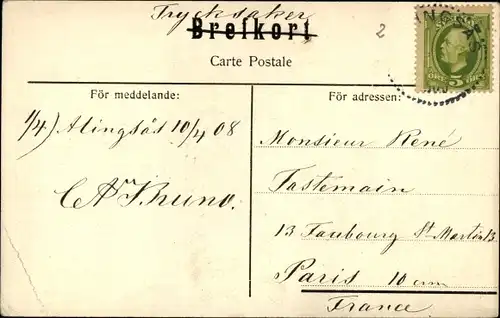 Trycksaker
2
Brefkort
Carte Postale
För meddelande:
För adressen:
1/4) Alingsås 10/4 08
Monsieur René
Tastemain
13 Faubourg St Martin 13
Paris 10 em
France
5
ÖRE